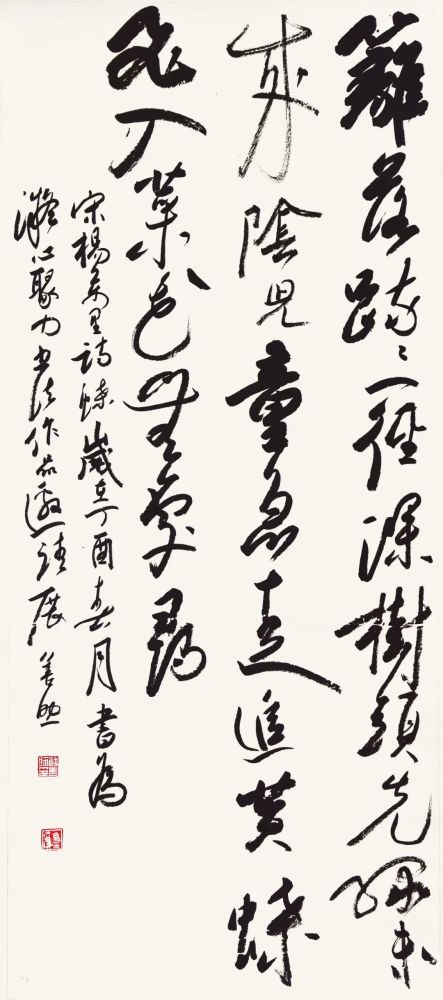 籬落疏〻一徑深樹頭先綠未
成陰兒童急走追黄蝶
飛入菜花無處尋
宋楊萬里詩蝶歲在丁酉春月書為
凝心聚力書法作品邀請展善